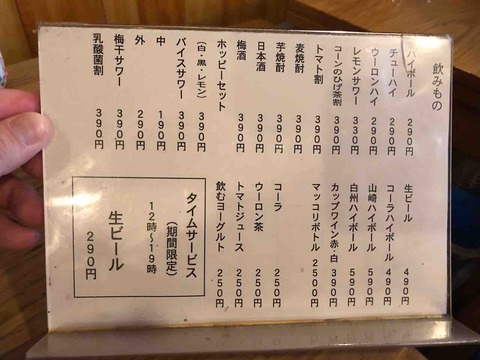 飲みもの
ハイボール 290円
チューハイ 290円
ウーロンハイ 290円
レモンサワー 330円
コーンのひげ茶割 390円
トマト割 390円
麦焼酎 390円
芋焼酎 390円
日本酒 390円
梅酒 390円
ホッピーセット
(白・黒・レモン) 390円
バイスサワー 390円
中 190円
外 290円
梅干サワー 390円
乳酸菌割 390円
生ビール 490円
コーラハイボール 490円
山崎ハイボール 590円
白州ハイボール 590円
カップワイン赤・白 390円
マッコリボトル 2500円
コーラ 250円
ウーロン茶 250円
トマトジュース 250円
飲むヨーグルト 250円
タイムサービス
(期間限定)
12時〜19時
生ビール
290円